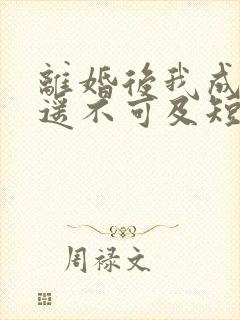 離婚後我成
遥不可及短
周禄文